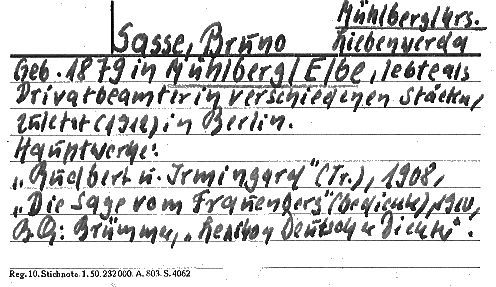 Mühlberg/Krs.
Sasse, Bruno Liebenwerda
Geb. 1879 in Mühlberg/Elbe, lebte als
Privatbeamter in verschiedenen Städten,
zuletzt (1912) in Berlin.
Hauptwerke:
„ u. Irmingard" (Tr.), 1908,
„Die Sage vom Frauenberg" (Gedicht), 1910,
Brümmer, „Lexikon Deutscher Dichter".
Reg. 10. Stichnote. 1. 50. 232000. A. 803. S. 4062